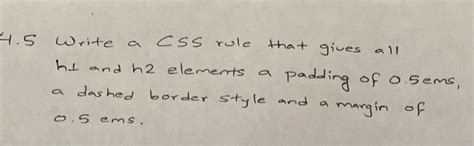 4.5 Write a CSS rule that gives all
h1 and h2 elements a padding of 0.5ems,
a dashed border style and a margin of
0.5 ems.